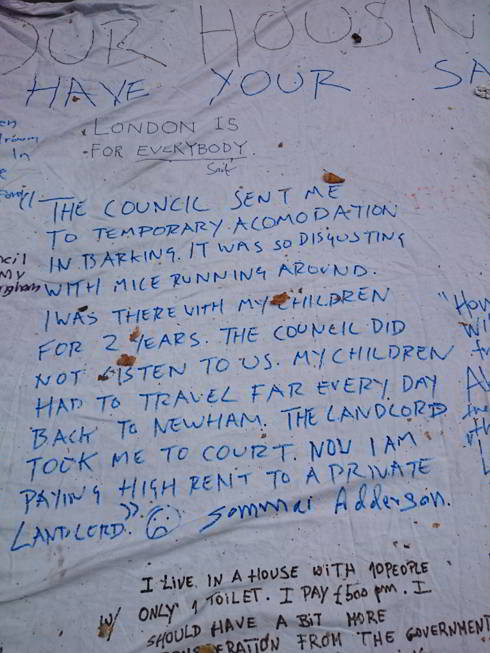 OUR HOUSIN
HAVE YOUR SA
LONDON IS
FOR EVERYBODY
THE COUNCIL SENT ME
TO TEMPORARY ACOMODATION
IN BARKING. IT WAS SO DISGUSTING
WITH MICE RUNNING AROUND.
I WAS THERE WITH MY CHILDREN
FOR 2 YEARS. THE COUNCIL DID
NOT LISTEN TO US. MY CHILDREN
HAD TO TRAVEL FAR EVERY DAY
BACK TO NEWHAM. THE LANDLORD
TOOK ME TO COURT. NOW I AM
PAYING HIGH RENT TO A PRIVATE
LANDLORD.” Sommai Adderson.
I LIVE IN A HOUSE WITH 10 PEOPLE
ONLY 1 TOILET. I PAY £500 pm. I
SHOULD HAVE A BIT MORE
FROM THE GOVERNMENT